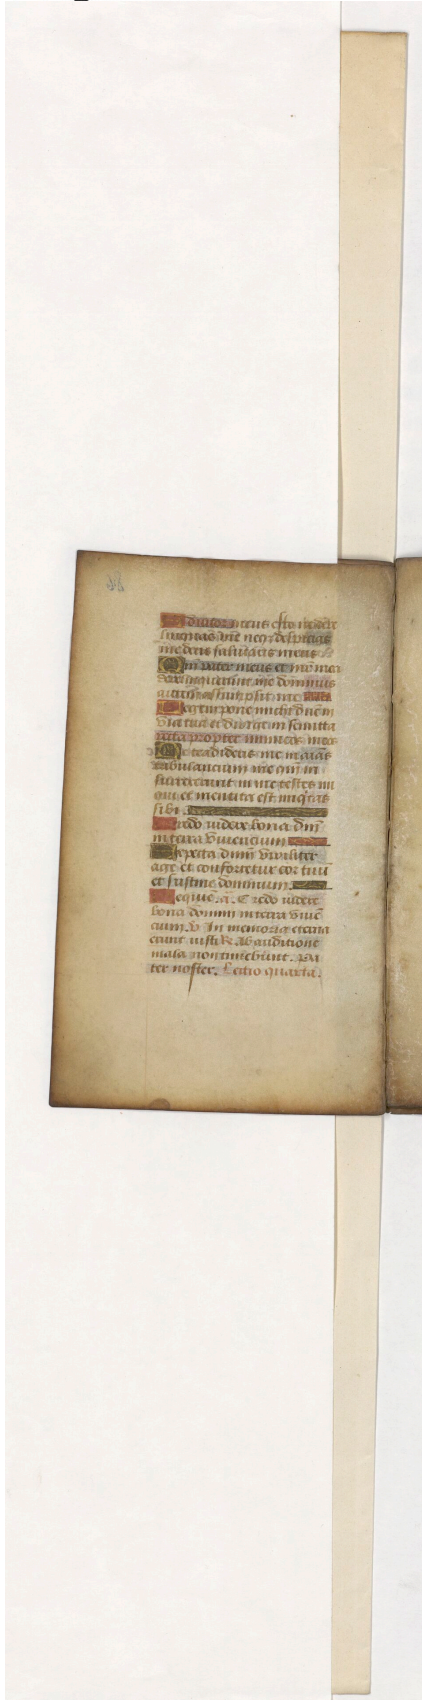 Adiutor meus esto ne dere
linquas me neqz despicias
me deus salutaris meus
Qm pater meus et mr mea
dereliquerunt me dominus
autem assumpsit me
Legem pone michi dne in
via tua et dirige in semita
recta propter inimicos meos
Ne tradideris me in aias
tribulancium me qm in
surrexerunt in me testes ini
qui et mentita est iniqtas
sibi
Credo videre bona dni
in terra viuencium
Expecta dnm viriliter
age et confortetur cor tuu
et sustine dominum
Requie. a. Credo videre
bona domini in terra viue
cium. v In memoria eterna
erunt iusti R Ab auditione
mala non timebunt. Pa
ter noster. Lectio quarta.